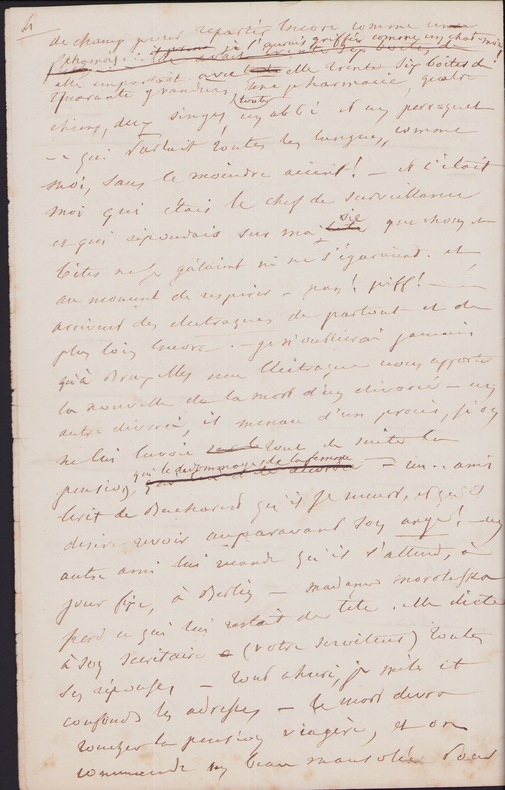 4
de champ pour repartir encore comme une
je l'aurais griffé comme un chat
elle emportait avec elle trente six boîtes de
quarante grandeurs, une pharmacie, quatre
chiens, deux singes, un abbé et un perroquet
toutes
qui parlait toutes les langues, comme
moi, sans le moindre accent! — et c'était
moi qui étais le chef de surveillance
et qui répondais sur ma vie que choses et
bêtes ne se gâtaient ni ne s'égaraient. et
au moment de respirer — pan! piff! —
arrivent des dépêches de partout et de
plus loin encore. — je n'oublierai jamais
qu'à Bruxelles une nous apporte
la nouvelle de la mort d'un divorcé — un
autre divorcé, il menace d'un procès, si on
ne lui envoie tout de suite la
pension qui le dédommage de la femme — un.. ami
écrit de Bucharest qu'il se meurt, et qu'il
désire revoir auparavant son ange! — un
autre ami lui mande qu'il l'attend, à
jour fixe, à Berlin — madame
perd ce qui lui restait de tête. elle dicte
à son secrétaire (votre serviteur) toutes
ses réponses — tout ahuri, je mêle et
confonds les adresses — le mort devra
toucher la pension viagère, et on
commande un beau mausolée pour